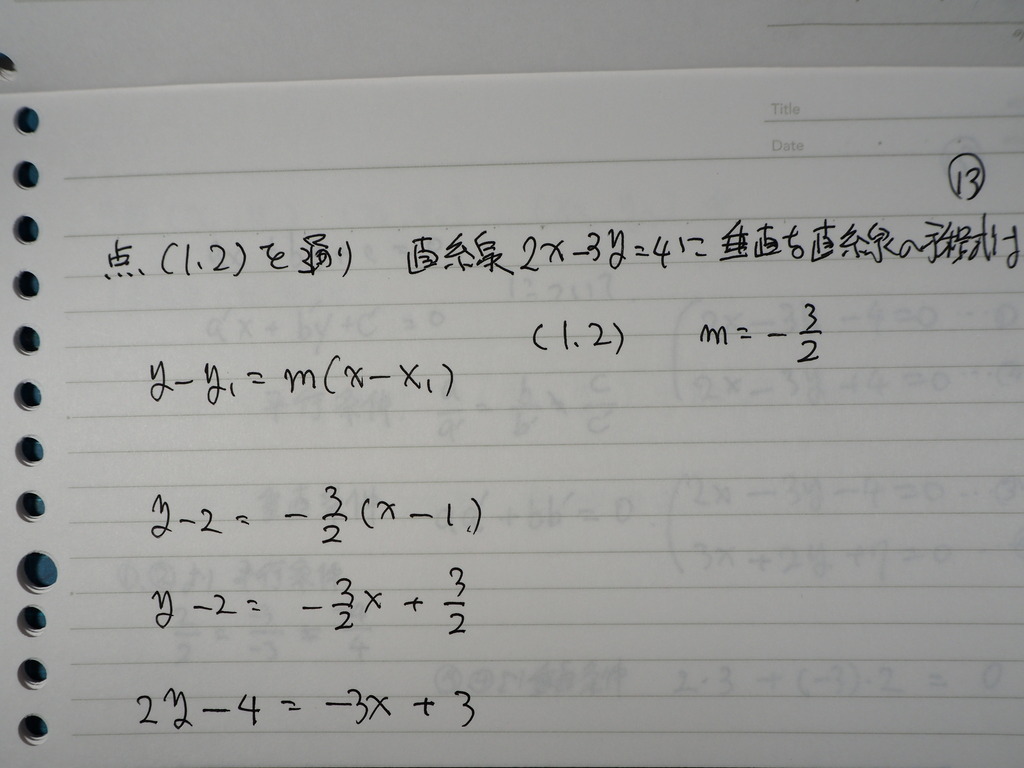 Title
Date
⑬
点 (1.2) を通り 直線 2x-3y=4に 垂直な直線の方程式は
(1.2) m = -3/2
y-y₁ = m(x-x₁)
y-2 = -3/2(x-1)
y-2 = -3/2x + 3/2
2y-4 = -3x+3